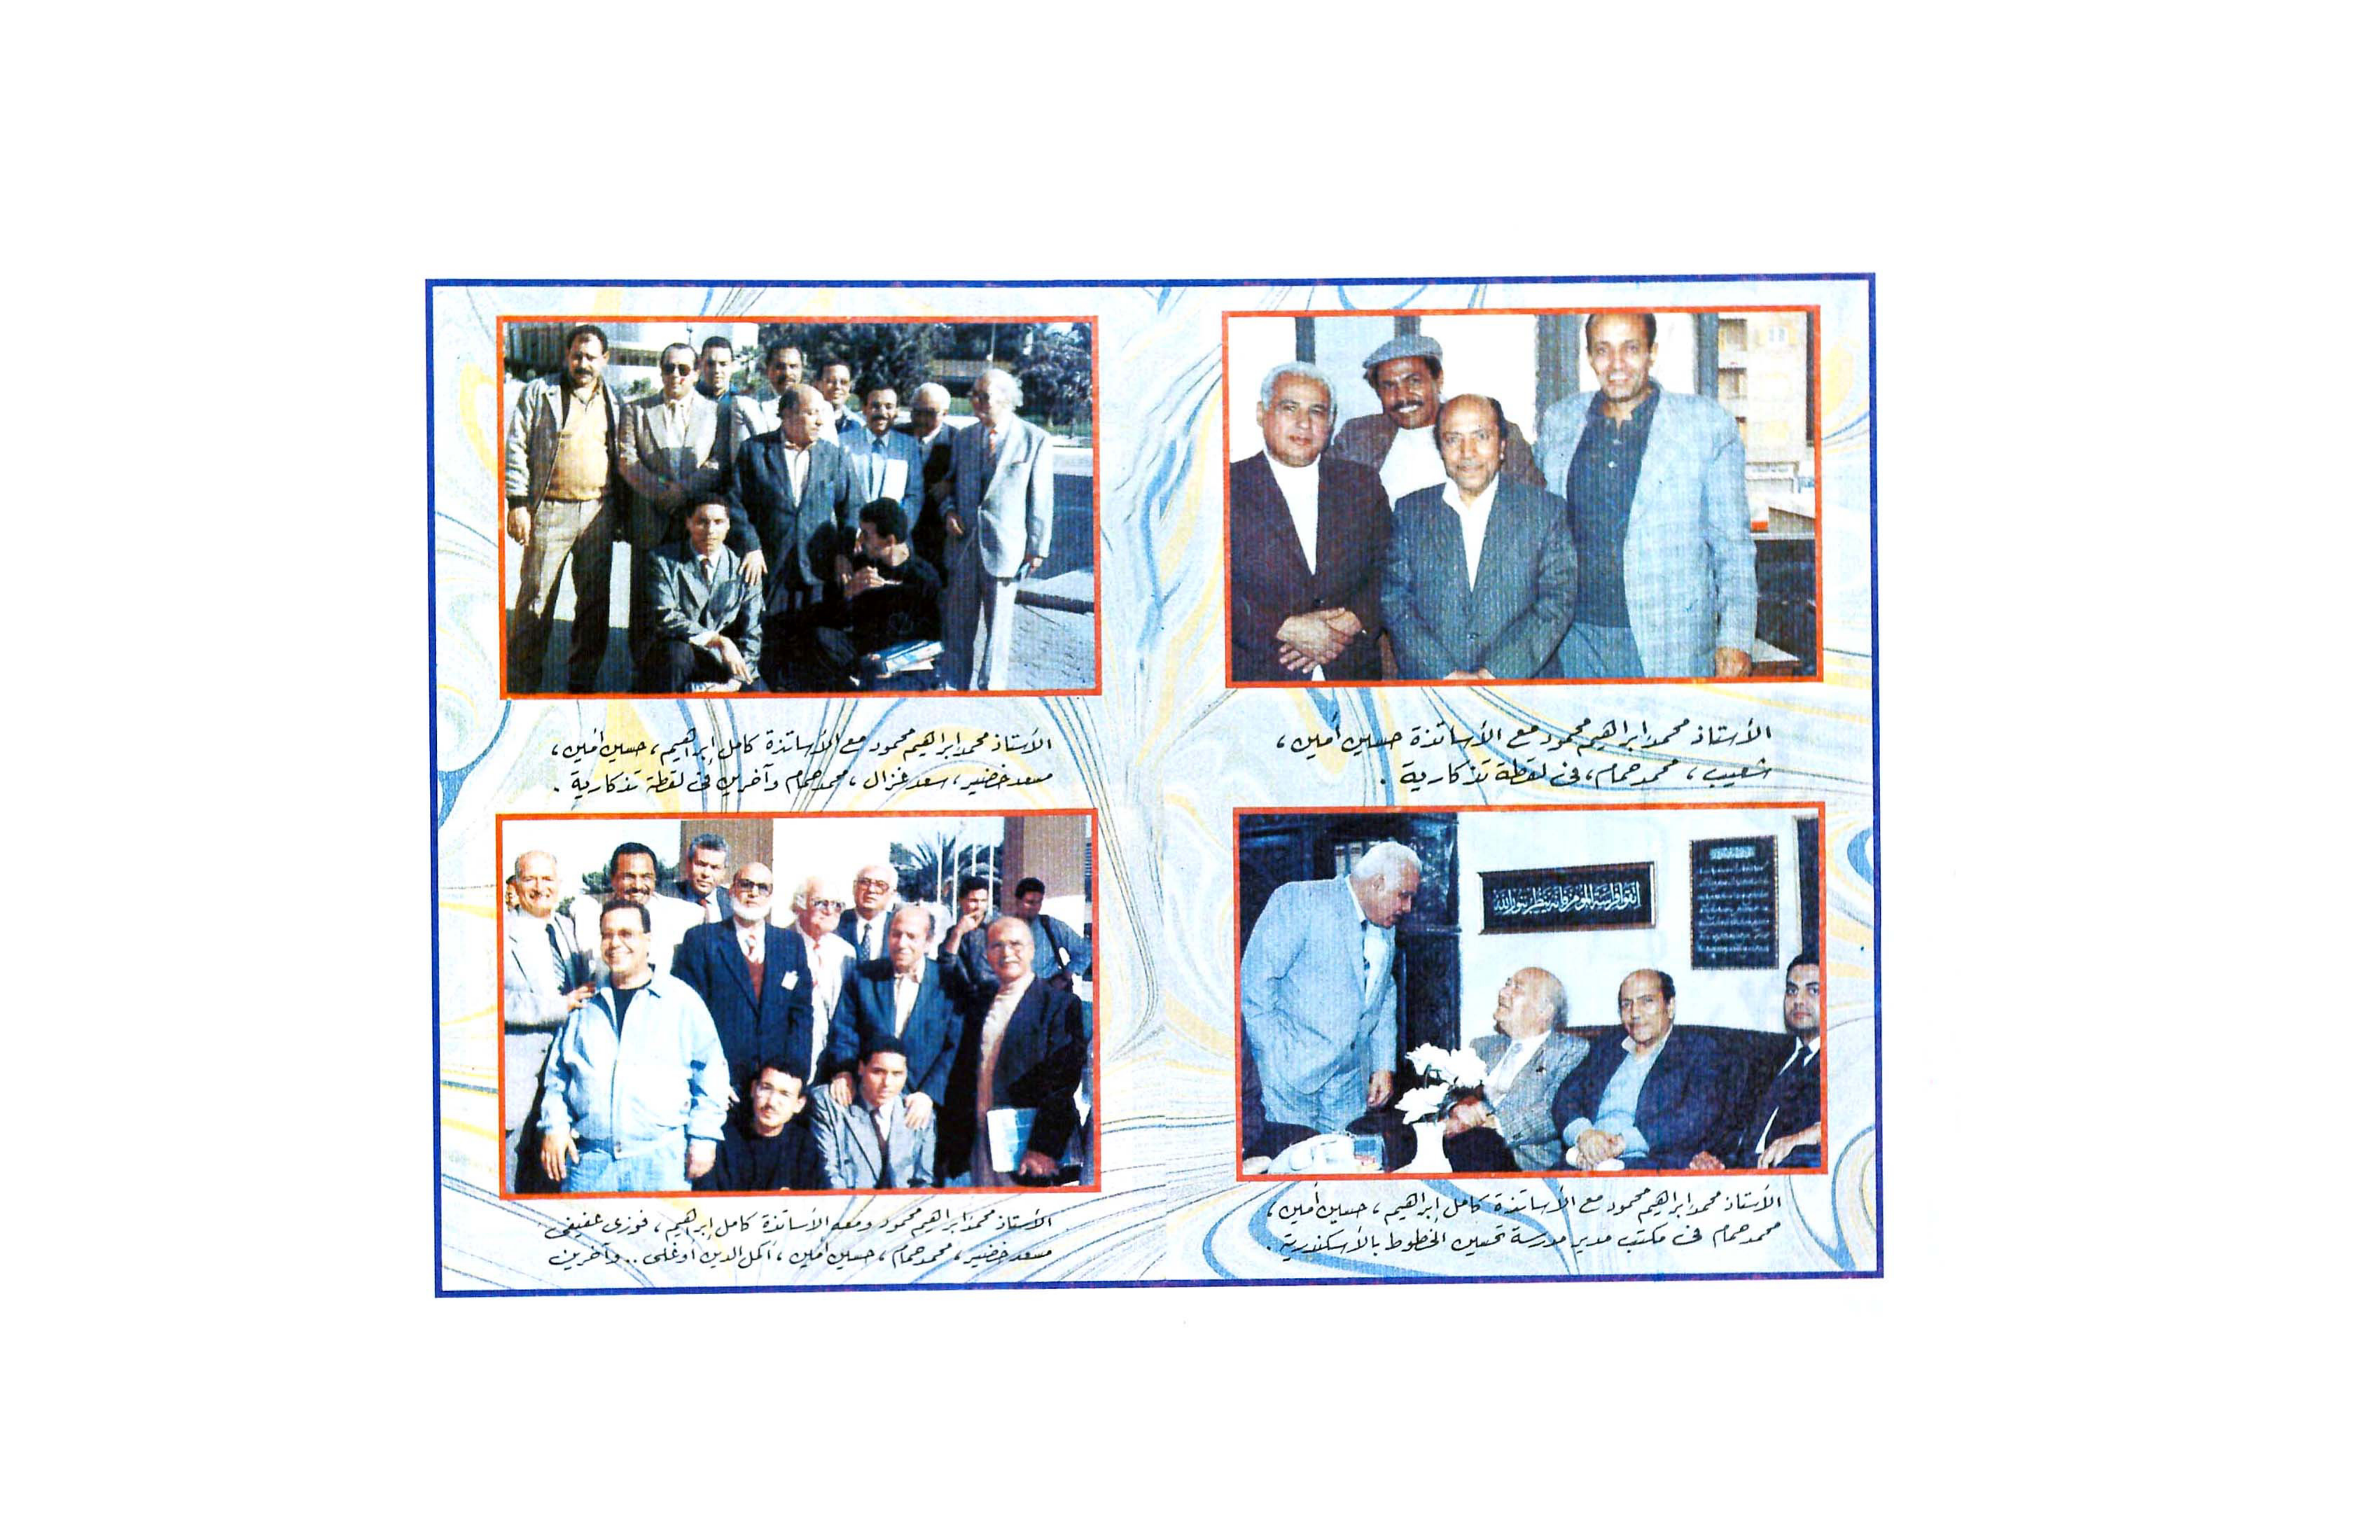 الأستاذ محمد إبراهيم محمود مع الأساتذة حسين أمين ،
شعيب ، محمد همام ، فى لقطة تذكارية .
الأستاذ محمد إبراهيم محمود مع الأساتذة كامل إبراهيم ، حسين أمين ،
مسعد خضير ، سعد غزال ، محمد همام وآخرين فى لقطة تذكارية .
اتقوا فراسة المؤمن فإنه ينظر بنور الله
الأستاذ محمد إبراهيم محمود مع الأساتذة كامل إبراهيم ، حسين أمين ،
محمد همام فى مكتب مدير مدرسة تحسين الخطوط بالأسكندرية .
الأستاذ محمد إبراهيم محمود ومعه الأساتذة كامل إبراهيم ، فوزى عفيفى ،
مسعد خضير ، محمد همام ، حسين أمين ، أكمل الدين أوغلى .. وآخرين